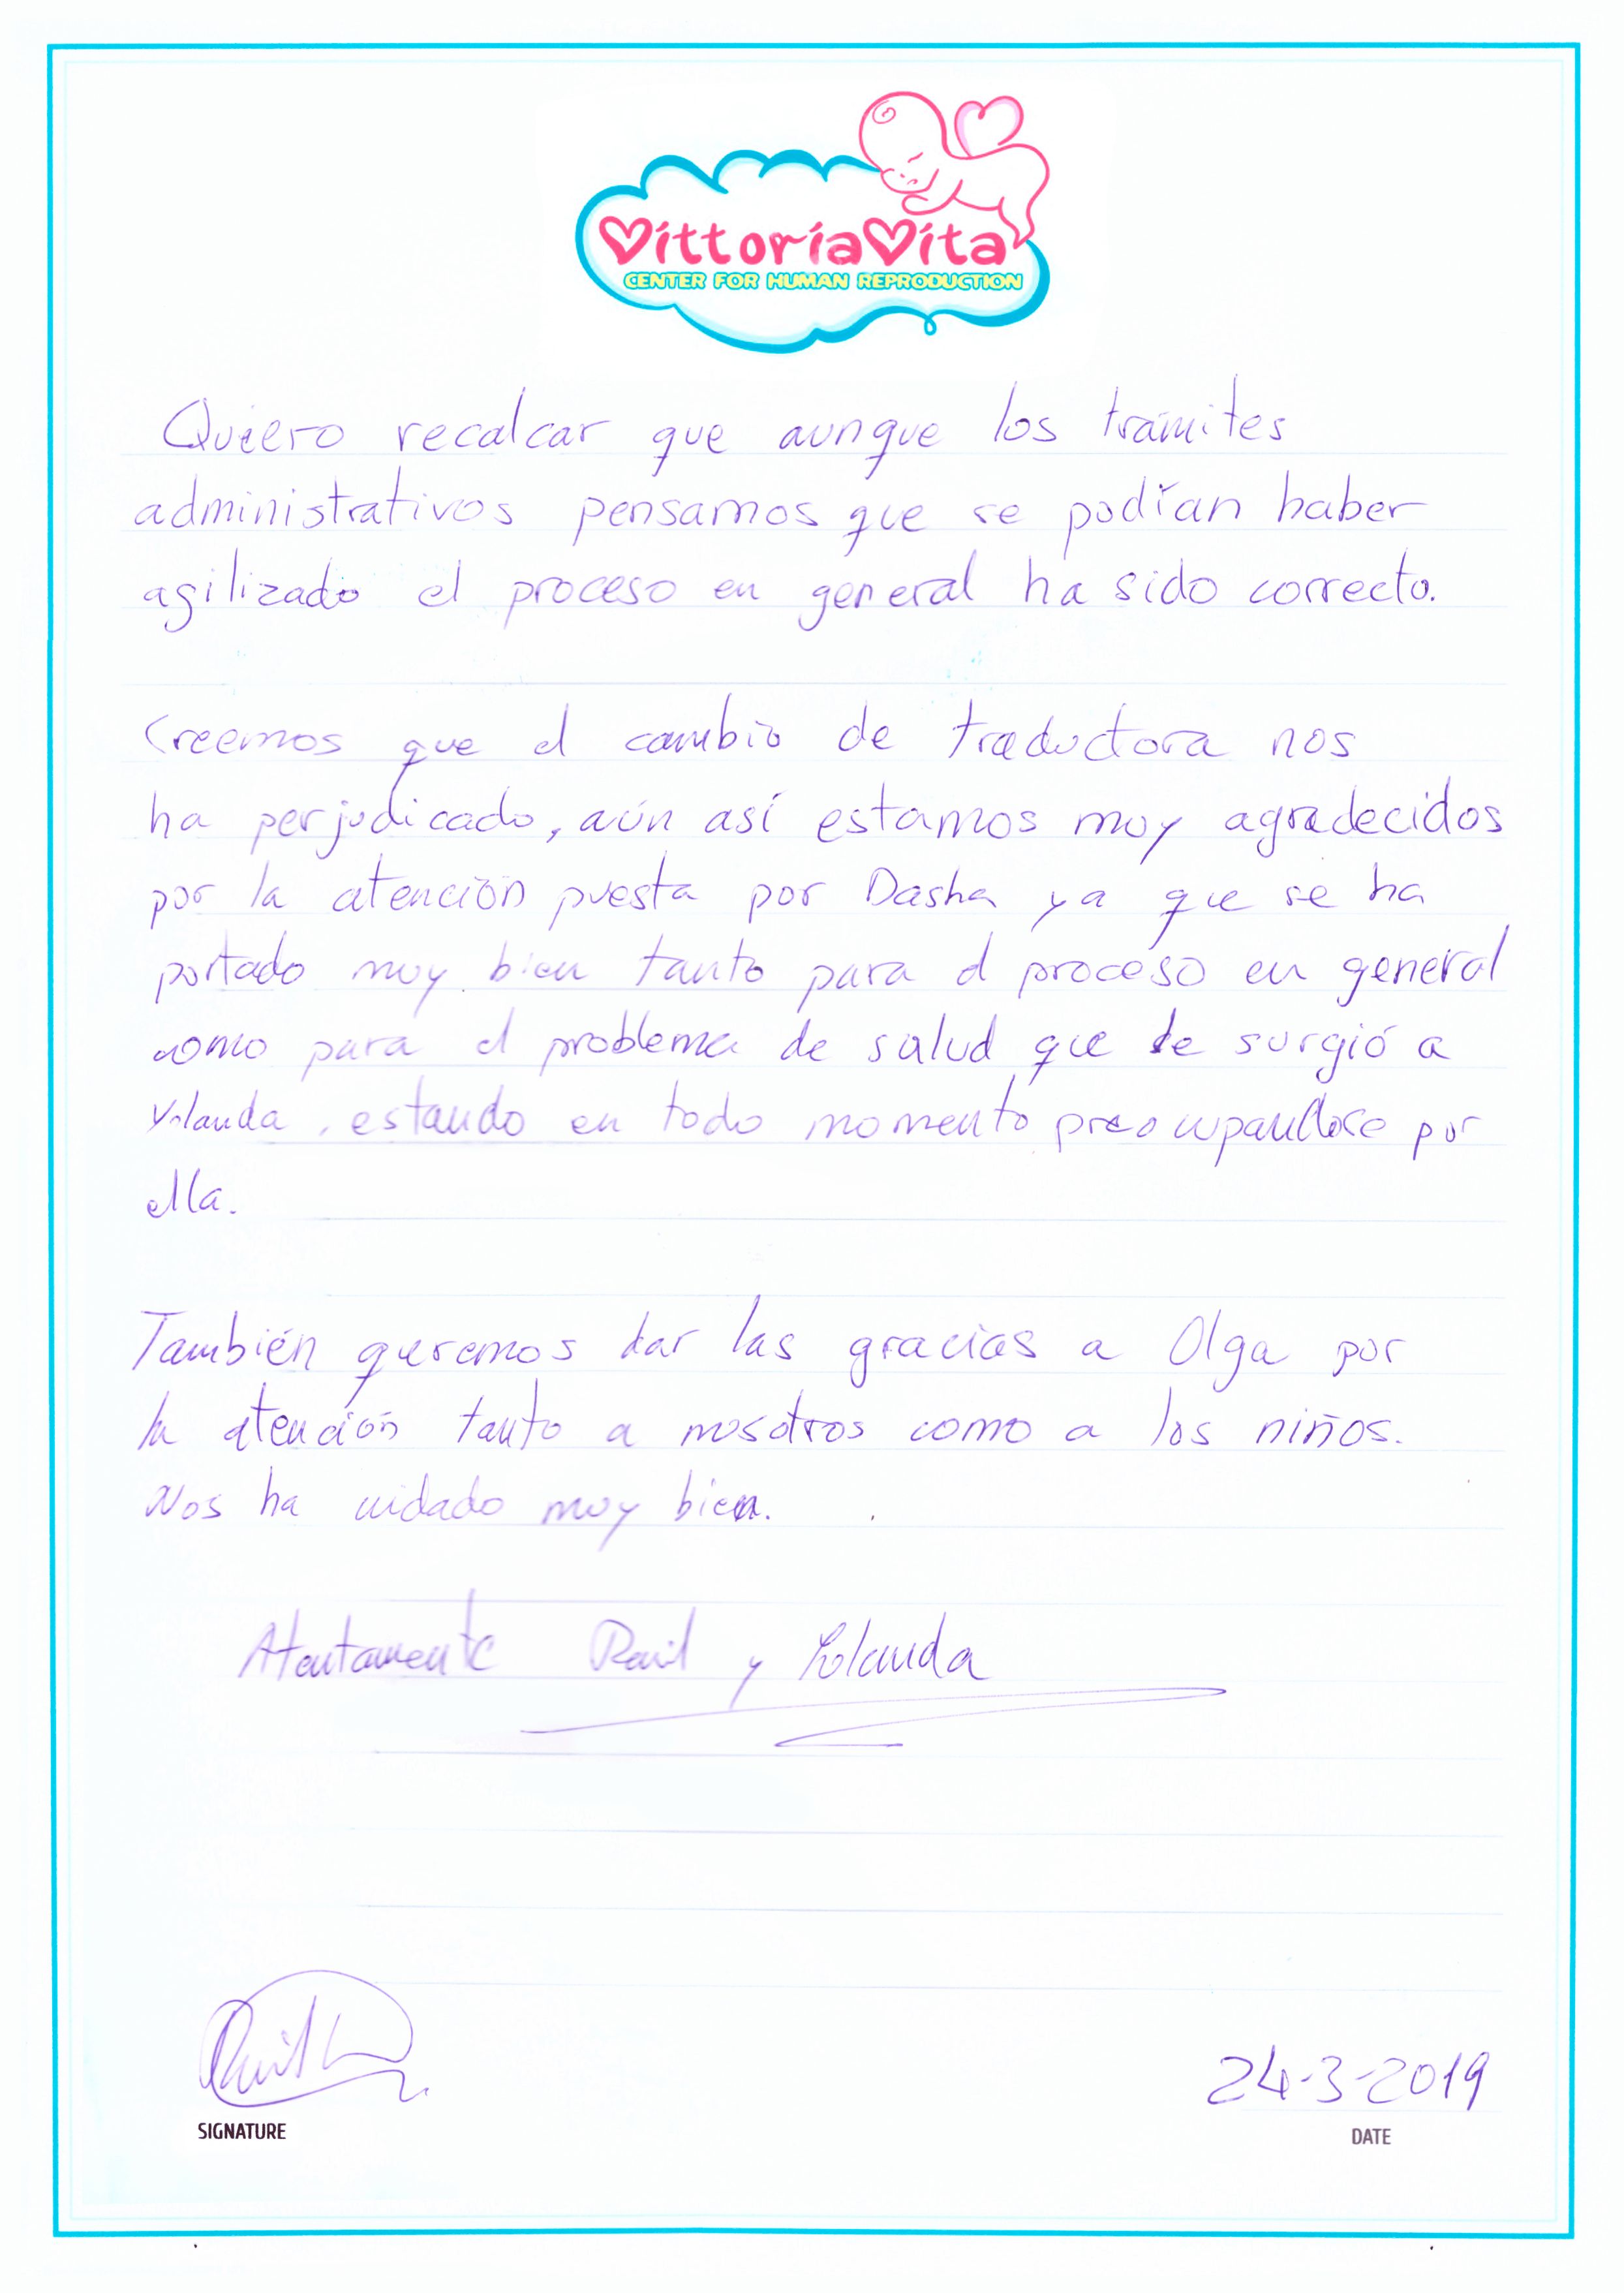 VittoriaVita
CENTER FOR HUMAN REPRODUCTION
Quiero recalcar que aunque los trámites
administrativos pensamos que se podían haber
agilizado el proceso en general ha sido correcto.
Creemos que el cambio de traductora nos
ha perjudicado, aún así estamos muy agradecidos
por la atención puesta por Dasha ya que se ha
portado muy bien tanto para el proceso en general
como para el problema de salud que le surgió a
Yolanda, estando en todo momento preocupandose por
ella.
También queremos dar las gracias a Olga por
la atención tanto a nosotros como a los niños.
Nos ha cuidado muy bien.
Atentamente Raúl y Yolanda
SIGNATURE
24-3-2019
DATE